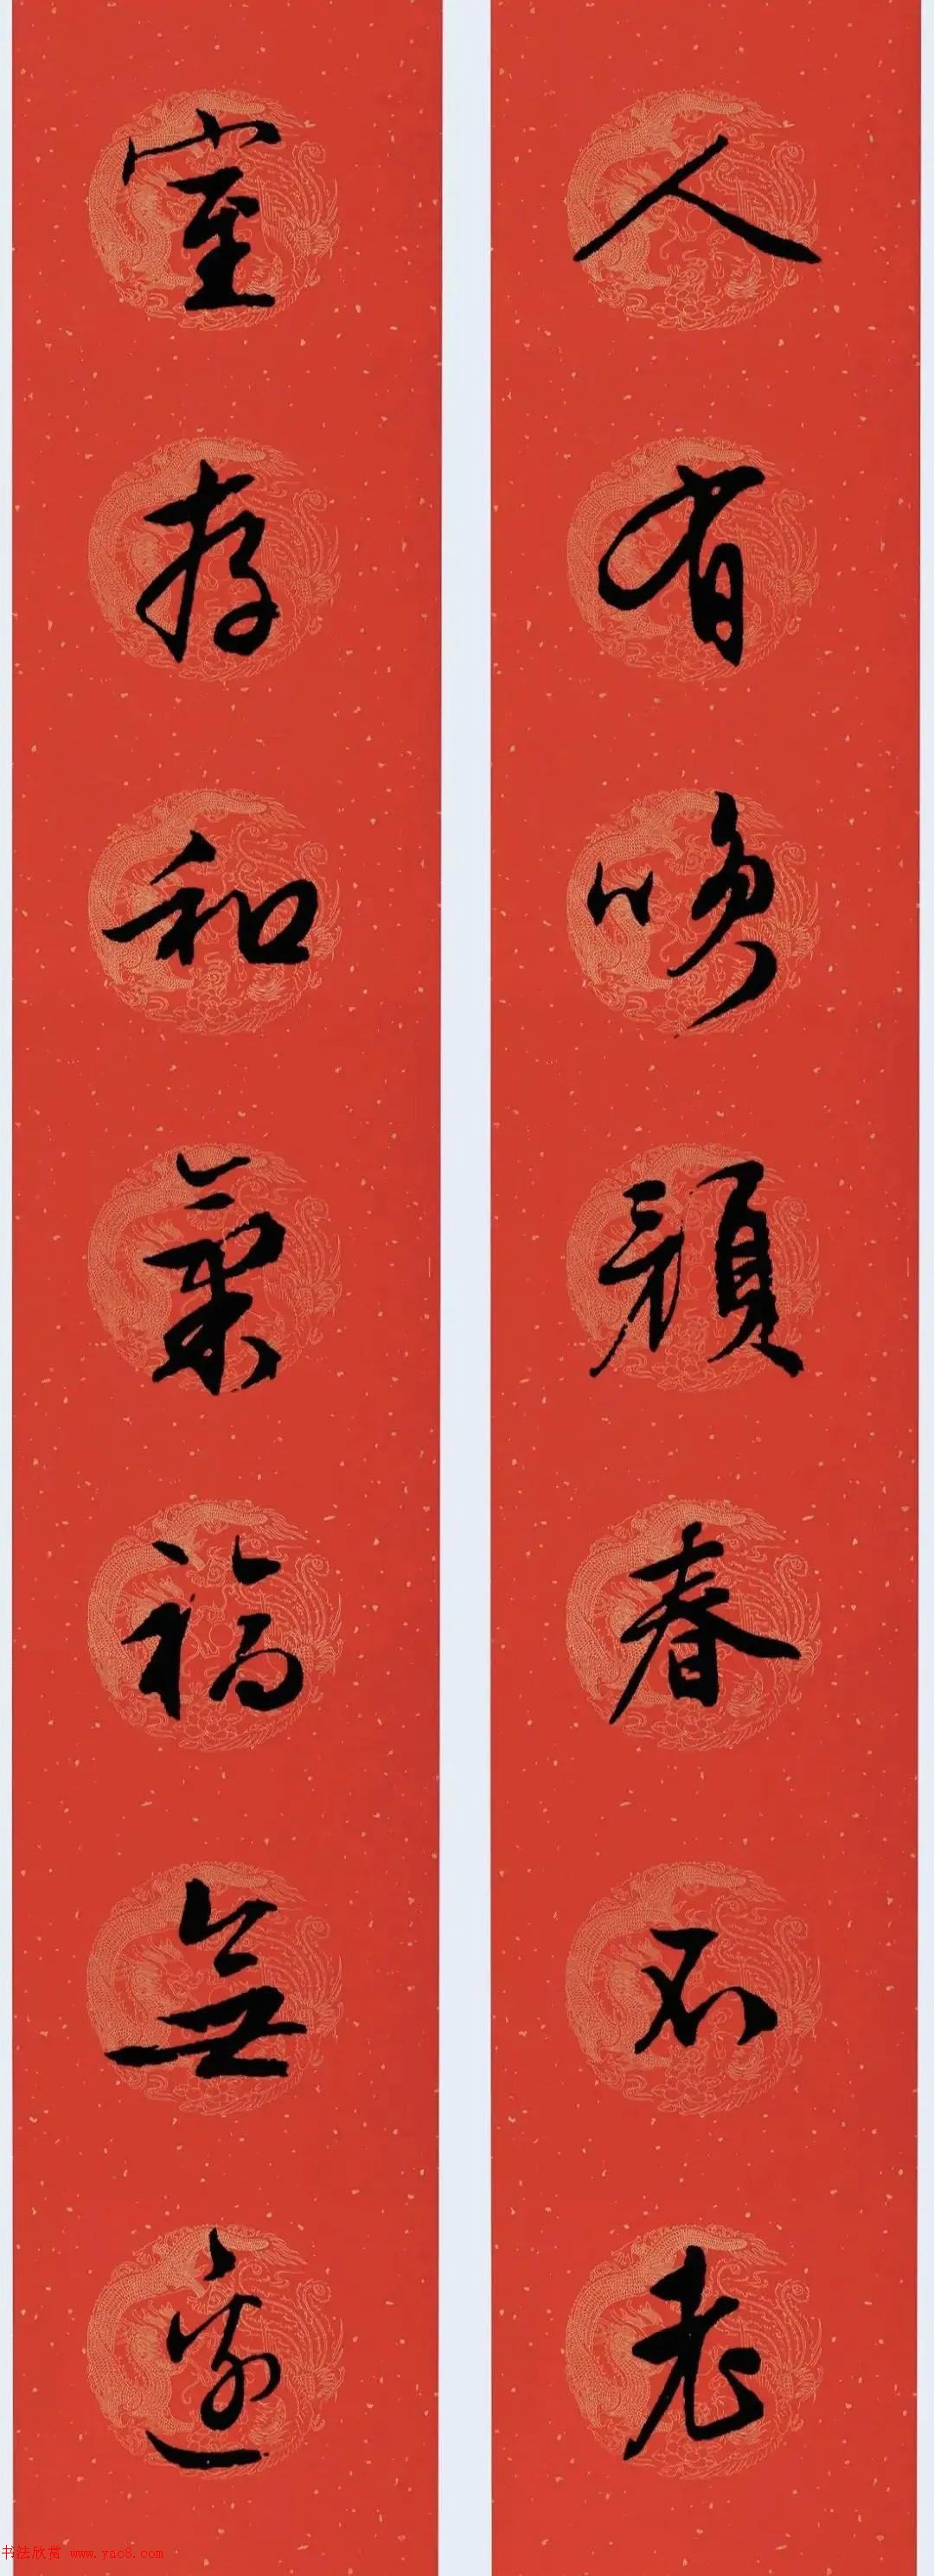 人有喚顔春不老
室存和氣福無邊
书法欣赏 www.yac8.com